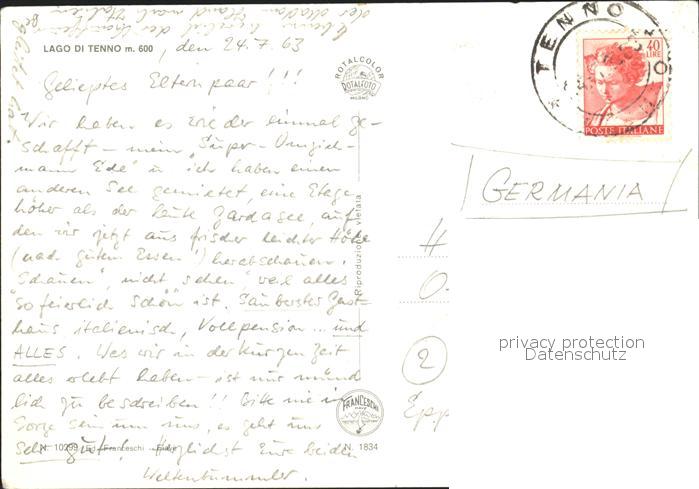 LAGO DI TENNO m. 600
, den 24.7.63
Geliebtes Elternpaar!!!
Wir haben es wieder einmal ge-
schafft - mein "Super-
mann Ede" u. ich haben einen
anderen See gemietet, eine Etage
höher als der heute Gardasee, auf
den wir jetzt aus frischer leichter Höhe
(nach gutem Essen!) herabschauen.
"Schauen", nicht "sehen", weil alles
so feierlich schön ist. Sauberstes Gast-
haus italienisch, Vollpension... und
ALLES. Was wir in der kurzen Zeit
alles erlebt haben - ist nur münd
lich zu beschreiben!! Bitte nie in
Sorge sein um uns, es geht uns
sehr gut! Herzlichst Eure beiden
Weltenbummler.
ROTALCOLOR
ROTALFOTO
MILANO
Riproduzione vietata
FRANCESCHI
N. 10299 Ed. Franceschi
N. 1834
TENNO
40
LIRE
POSTE ITALIANE
GERMANIA
H
O
2
Epp
privacy protection
Datenschutz